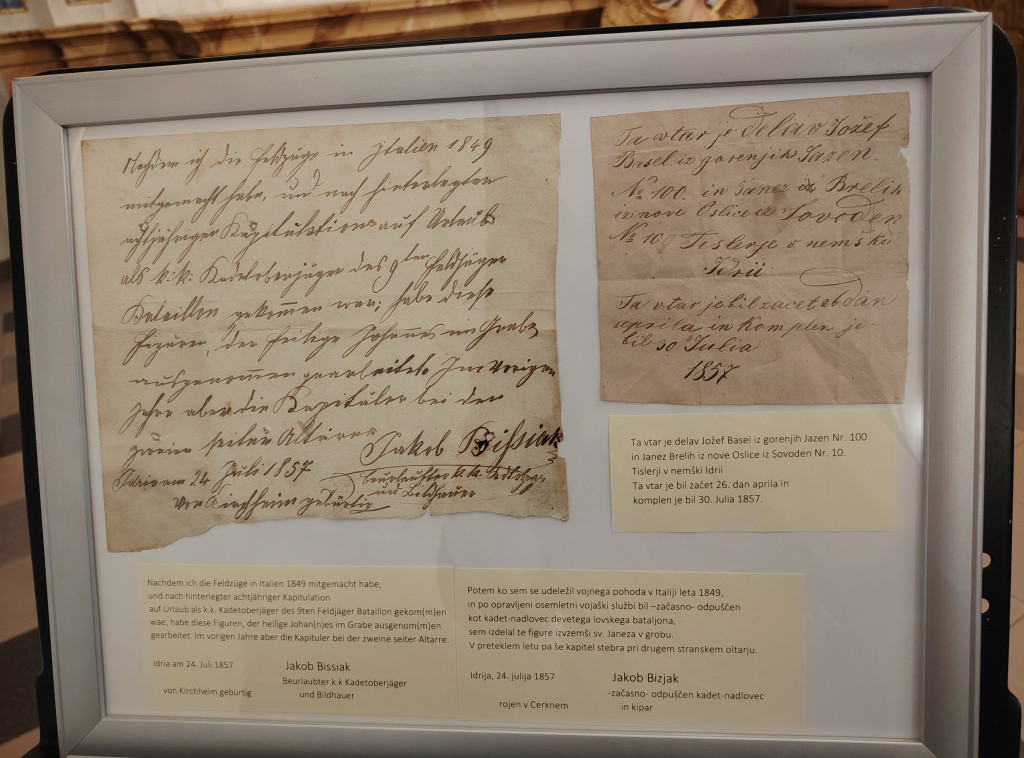 Nachdem ich die Feldzüge in Italien 1849
mitgemacht habe, und nach hinterlegten
achtjähriger Kapitulktion auf Urlaub
als k: k: Kadetoberjäger des 9ten Feldjäger
Bataillon gekommen war; habe diese
Figuren, der heilige Johannes im Grabe
ausgenommen gearbeitet. Im vorigen
Jahre aber die Kapitäler bei den
zweien seiter Altäre
Jakob Bissiak
Idria am 24 Juli 1857
beurlaubter k.k.
und Bildhauer
von Kirchheim gebürtig
Ta vtar je delav Jožef
Basel iz gorenjih Jazen.
No 100. in Janez iz Brelih
iz nove Oslice iz Sovoden
No 10 Tislerje v nemški
Idrii
Ta vtar je bil začet 26 dan
aprila in komplen je
bil 30 Julia
1857
Ta vtar je delav Jožef Basel iz gorenjih Jazen Nr. 100
in Janez Brelih iz nove Oslice iz Sovoden Nr. 10.
Tislerji v nemški Idrii
Ta vtar je bil začet 26. dan aprila in
komplen je bil 30. Julia 1857.
Nachdem ich die Feldzüge in Italien 1849 mitgemacht habe,
und nach hinterlegter achtjähriger Kapitulation
auf Urlaub als k.k. Kadetoberjäger des 9ten Feldjäger Bataillon gekom(m)en
wae, habe diese Figuren, der heilige Johan(n)es im Grabe ausgenom(m)en
gearbeitet. Im vorigen Jahre aber die Kapituler bei der zweine seiter Altarre.
Idria am 24. Juli 1857
Jakob Bissiak
Beurlaubter k.k Kadetoberjäger
von Kirchheim gebürtig
und Bildhauer
Potem ko sem se udeležil vojnega pohoda v Italiji leta 1849,
in po opravljeni osemletni vojaški službi bil –začasno- odpuščen
kot kadet-nadlovec devetega lovskega bataljona,
sem izdelal te figure izvzemši sv. Janeza v grobu.
V preteklem letu pa še kapitel stebra pri drugem stranskem oltarju.
Idrija, 24. julija 1857
Jakob Bizjak
-začasno- odpuščen kadet-nadlovec
rojen v Cerknem
in kipar